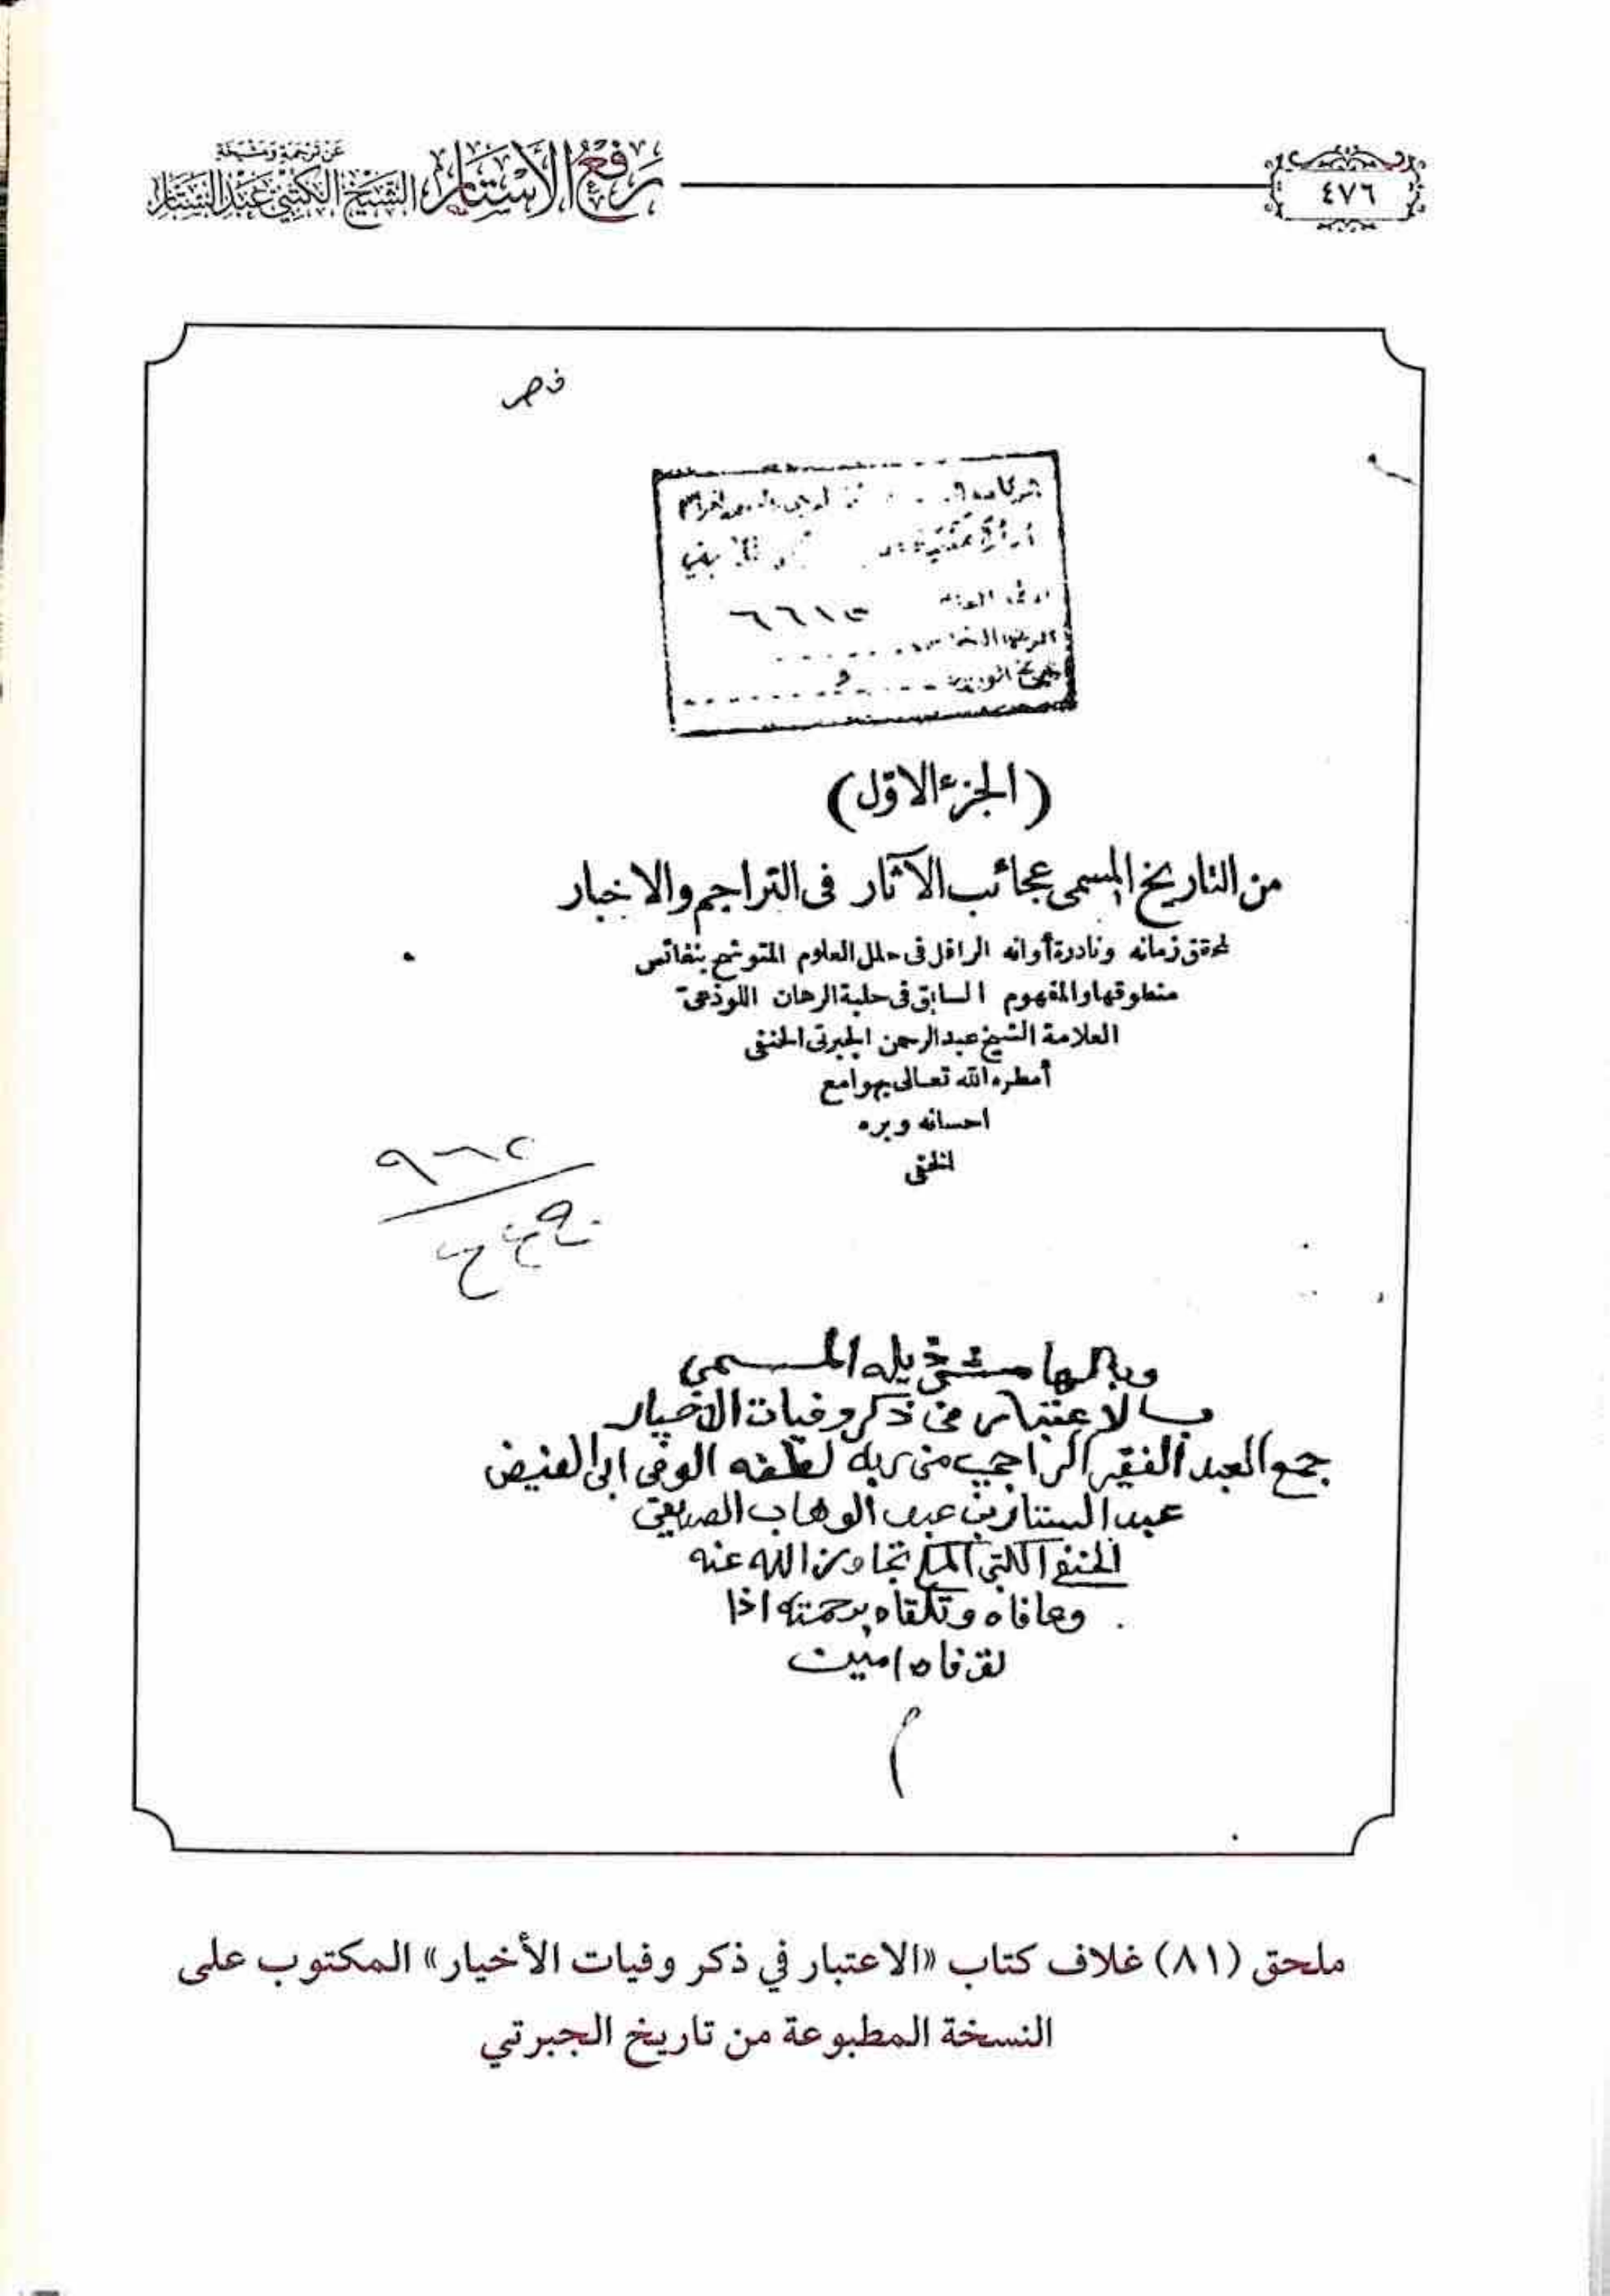 ٤٧٦
رفع الأستار
عن ترجمة ومشيخة
الشيخ الكتبي عبد الستار
(الجزء الاوّل)
من التاريخ المسمى عجائب الآثار فى التراجم والاخبار
لمحقق زمانه ونادرة أوانه الرافل فى حلل العلوم المتوشح بنفائس
منطوقها والمفهوم السابق فى حلبة الرهان اللوذعىّ
العلامة الشيخ عبد الرحمن الجبرتى الحنفى
أمطره الله تعالى بهوامع
احسانه وبره
الخفى
وبالهامش ذيله المسمى
بالاعتبار فى ذكر وفيات الاخيار
جمع العبد الفقير الراجي من ربه لطفه الوفى ابى الفيض
عبد الستار بن عبد الوهاب الصديقي
الحنفي الكتبي المكي تجاوز الله عنه
وعافاه وتلقاه برحمته اذا
توفاه امين
ملحق (٨١) غلاف كتاب «الاعتبار في ذكر وفيات الأخيار» المكتوب على
النسخة المطبوعة من تاريخ الجبرتي